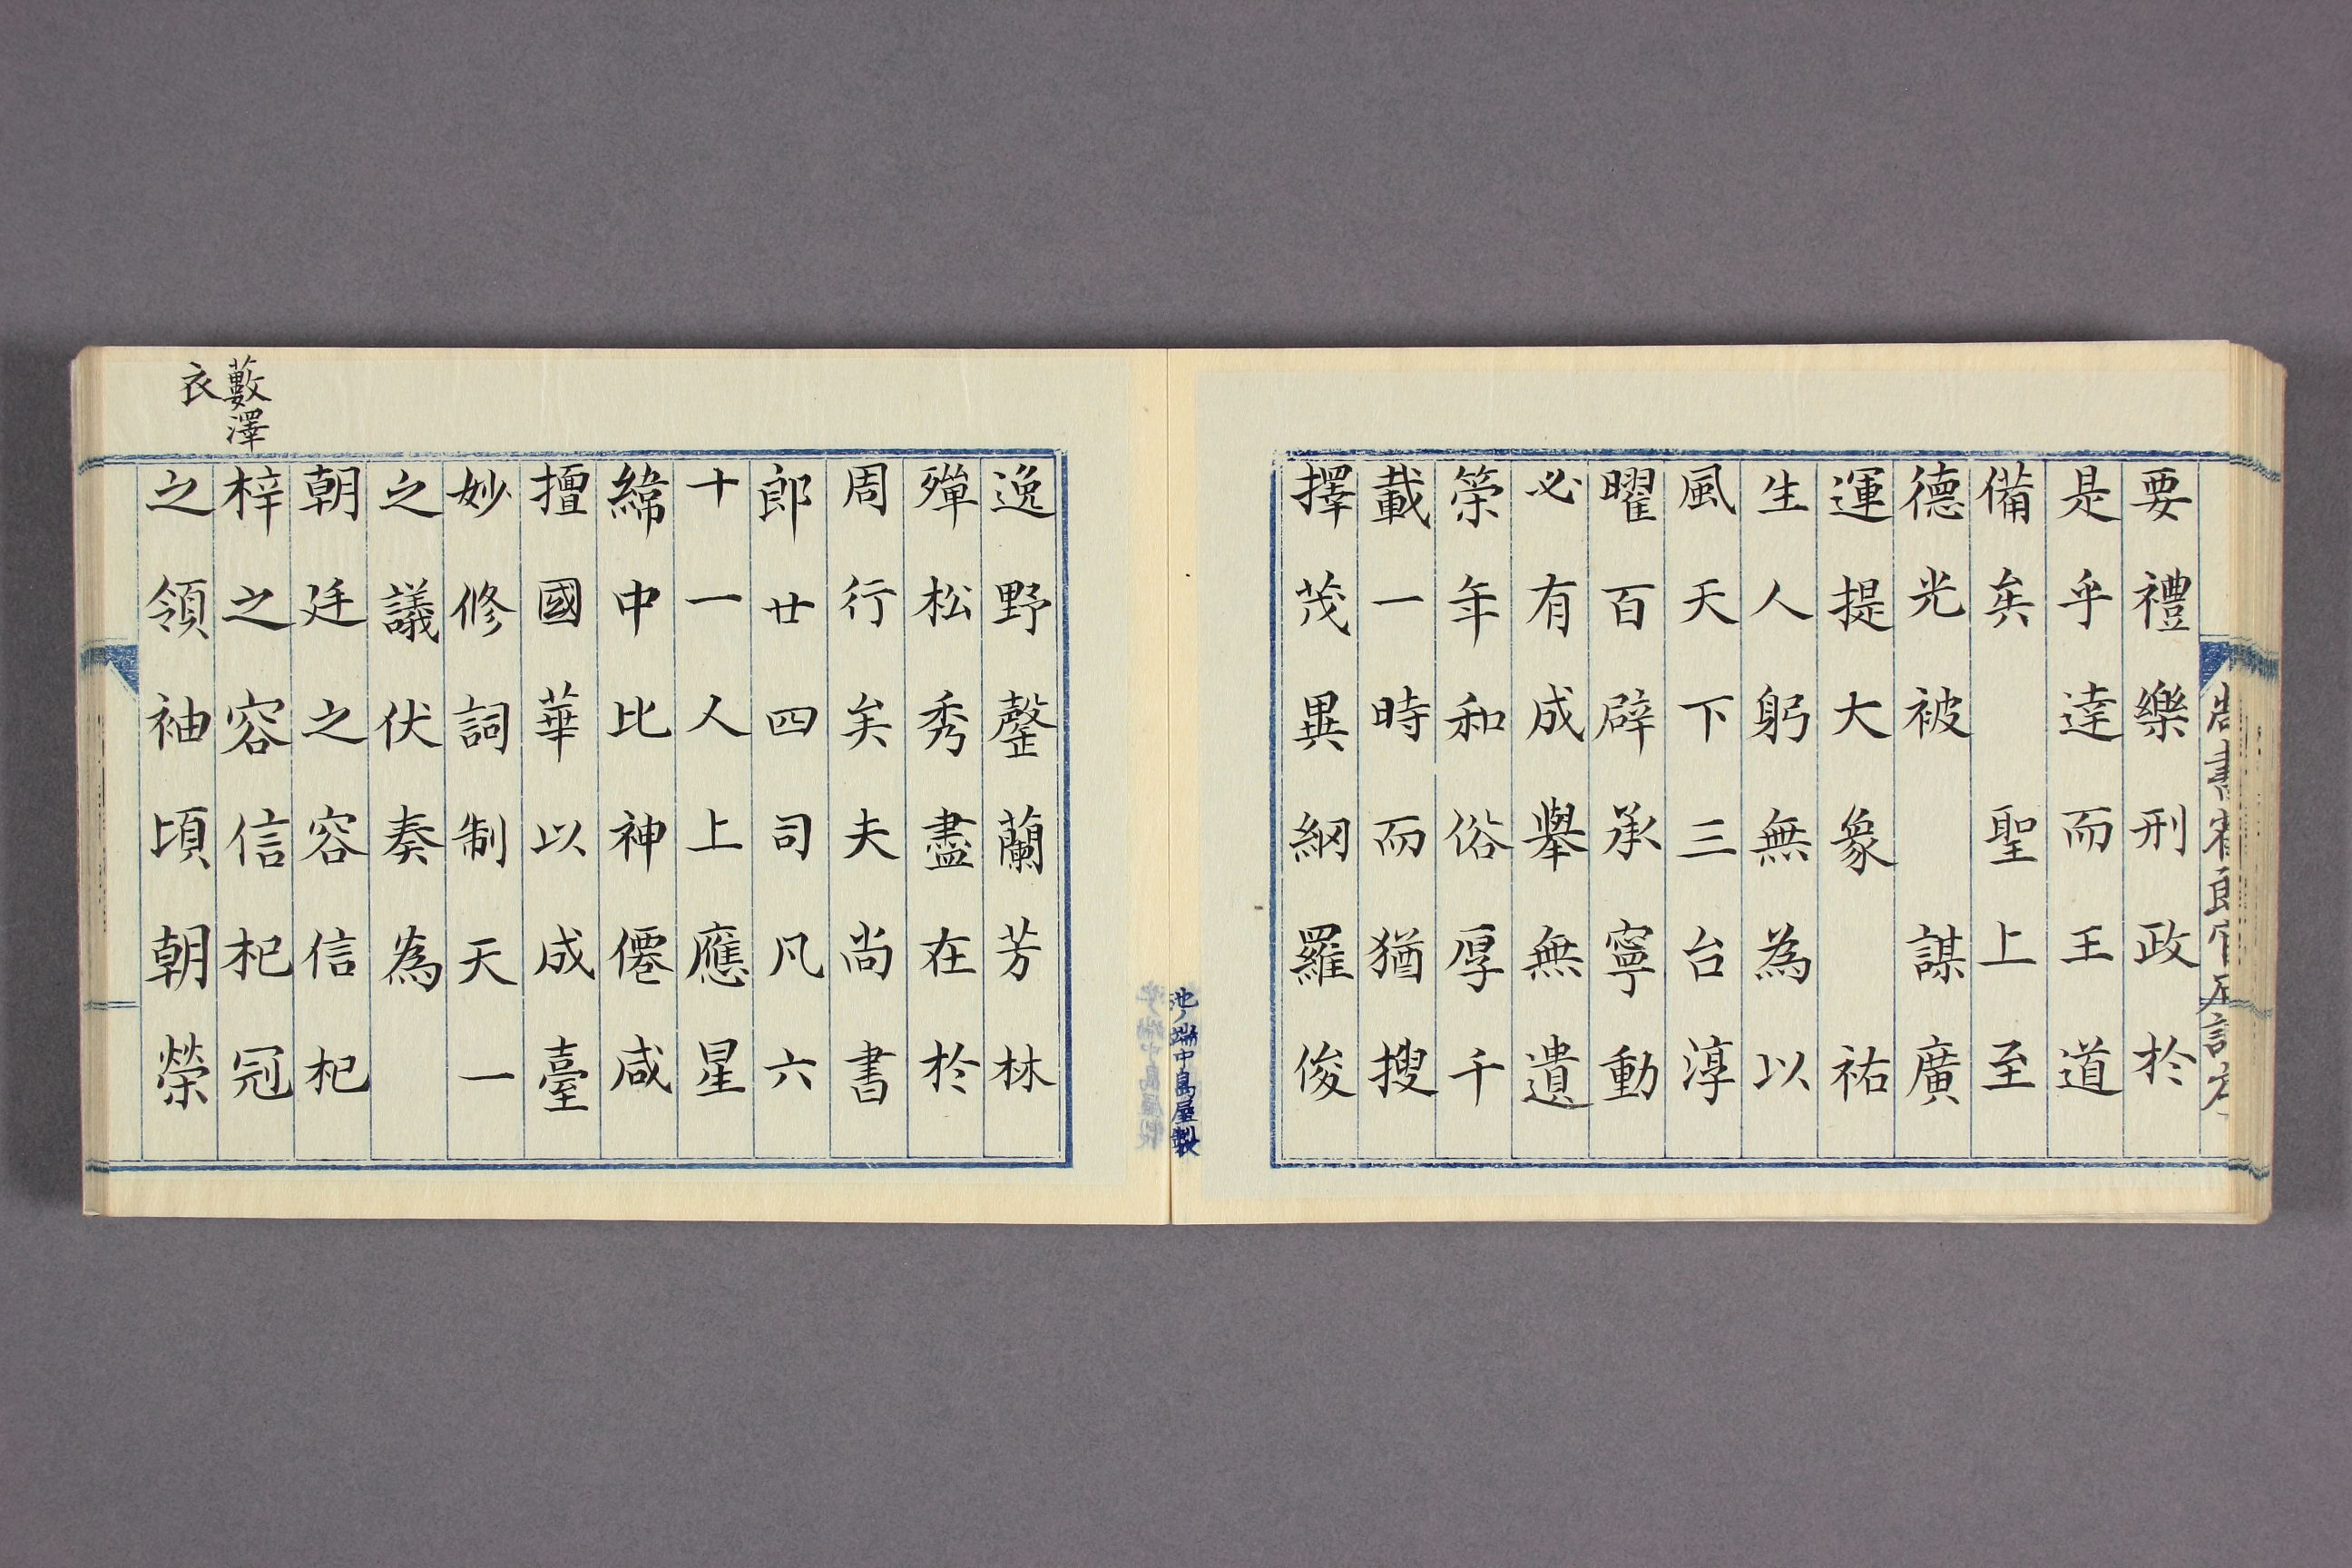 尚書省郎官石記序
要禮樂刑政於
是乎達而王道
備矣　聖上至
德光被　謀廣
運提大象　祐
生人躬無為以
風天下三台淳
曜百辟承寧動
必有成舉無遺
筞年和俗厚千
載一時而猶搜
擇茂異網羅俊
池ノ端中島屋製
逸野罄蘭芳林
殫松秀盡在於
周行矣夫尚書
郎廿四司凡六
十一人上應星
緯中比神僊咸
擅國華以成臺
妙修詞制天一
之議伏奏為
朝廷之容信杞
梓之容信杞冠
之領袖頃朝榮
藪澤
衣